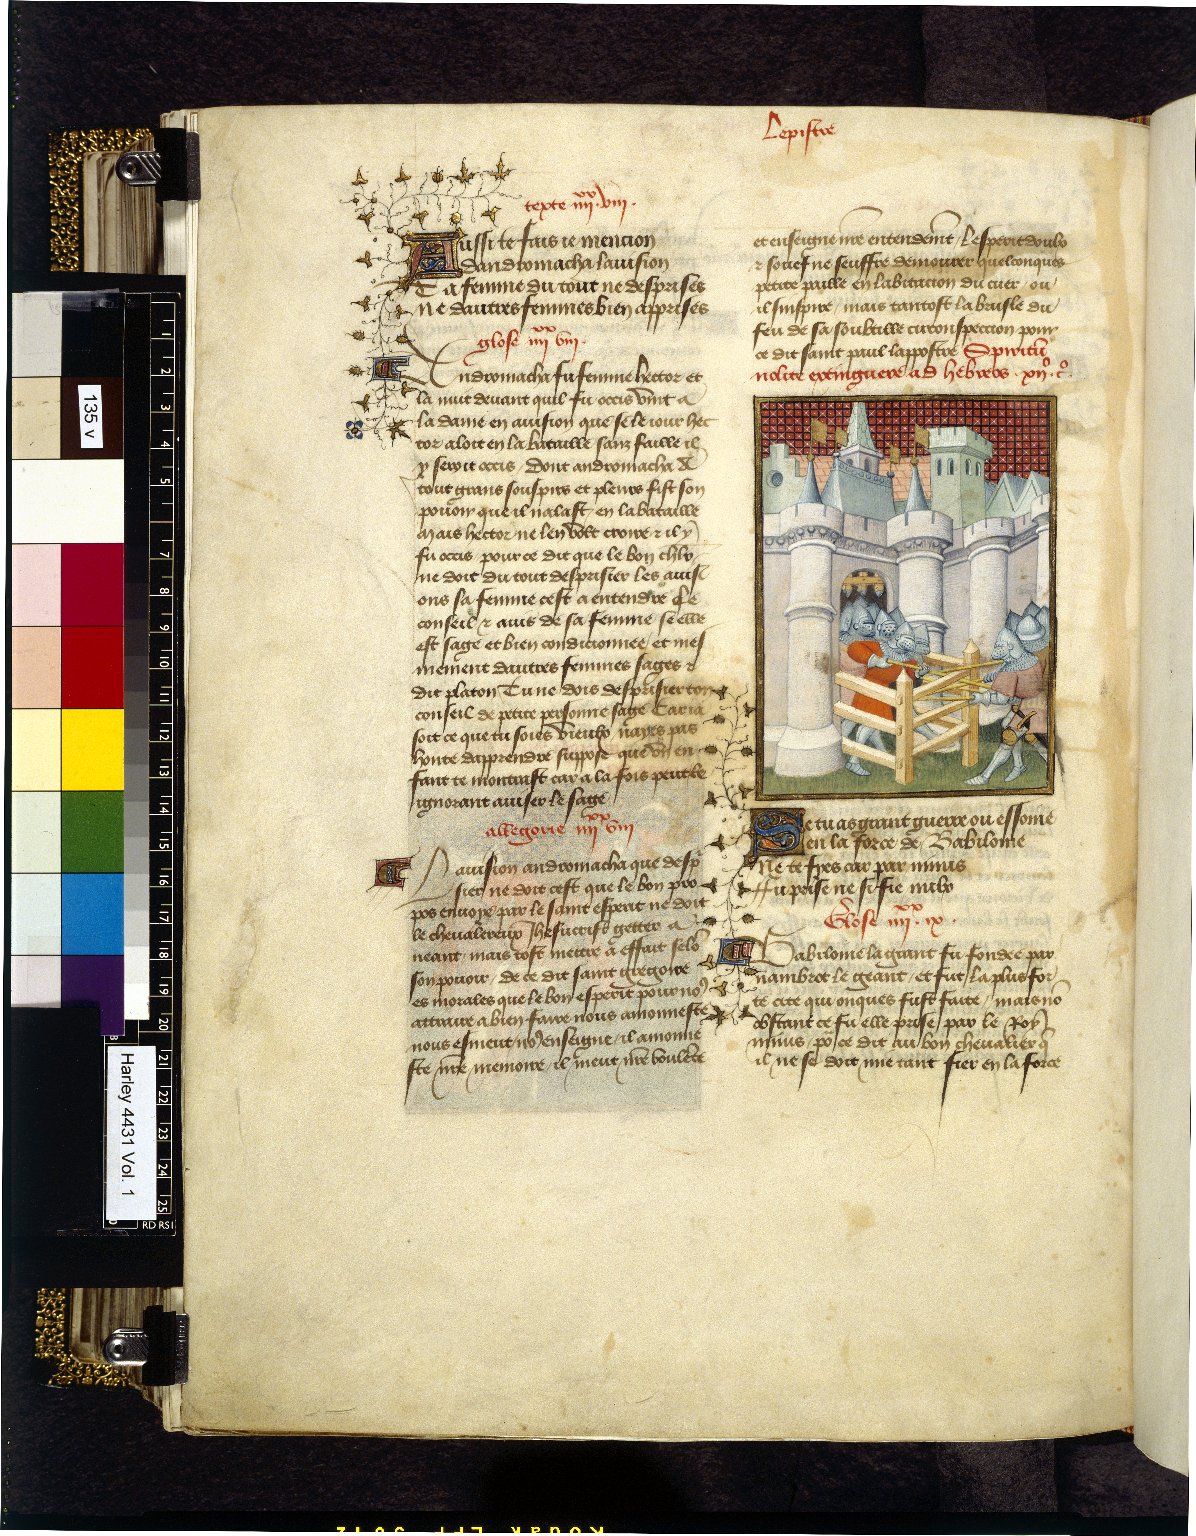 Lepistre
texte iiii xx viii.
Aussi te fais ie mencion
Dandromacha lauision
Ta femme du tout ne desprises
Ne dautres femmes bien apprises
glose iiii xx viii.
Andromacha fu femme hector et
la nuit deuant quil fu occis vint a
la dame en auision que se le iour hec
tor aloit en la bataille sanz faille il
y seroit occis. Dont andromacha a
tout grans souspirs et pleurs fist son
pouoir que il nalast en la bataille
Mais hector ne len volt croire & il y
fu occis pour ce dit que le bon chlr
ne doit du tout desprisier les auisi
ons sa femme cest a entendre Le
conseil & auis de sa femme se elle
est sage et bien condicionnee et mes
mement dautres femmes sages &
dit platon Tu ne dois desprisier ton
conseil de petite personne sage Car ia
soit ce que tu soies vieulx nayes pas
honte dapprendre suppose que vn en
fant te monstrast car a la fois peut le
ignorant auiser le sage
allegorie iiii xx viii
Lauision andromacha que desp
sier ne doit cest que le bon pro
pos enuoye par le saint esperit ne doit
le cheualereux Jhesucrist getter a
neant mais tost mettre a effait selo
son pouoir, de ce dit saint gregoire
es morales que le bon esperit pour no9
attraire a bien faire nous amonneste
nous esmeut no9 enseigne, il amonne
ste nre memoire, il meut nre voulente
et enseigne nre entendemt, Lesperit doulx
& souef ne seuffre demourer quelconques
petite paille en labitacion du cuer, ou
il sinspire, mais tantost la brusle du
feu de sa soubtille circonspeccion pour
ce dit saint paul lappostre Spiritu
nolite extinguere ad hebreos. xii. c.
Se tu as grant guerre ou essoine
en la force de Babiloine
Ne te fyes car par minus
Fu prise ne si fie nulx
Glose iiii xx. ix.
Babiloine la grant fu fondee par
nambrot le geant, et fut la plus for
te cite qui onques fust faite, mais no
obstant ce fu elle prise par le Roy
minus, po ce dit au bon cheualier q
il ne se doit mie tant fier en la force
135 v
Harley 4431 Vol. 1